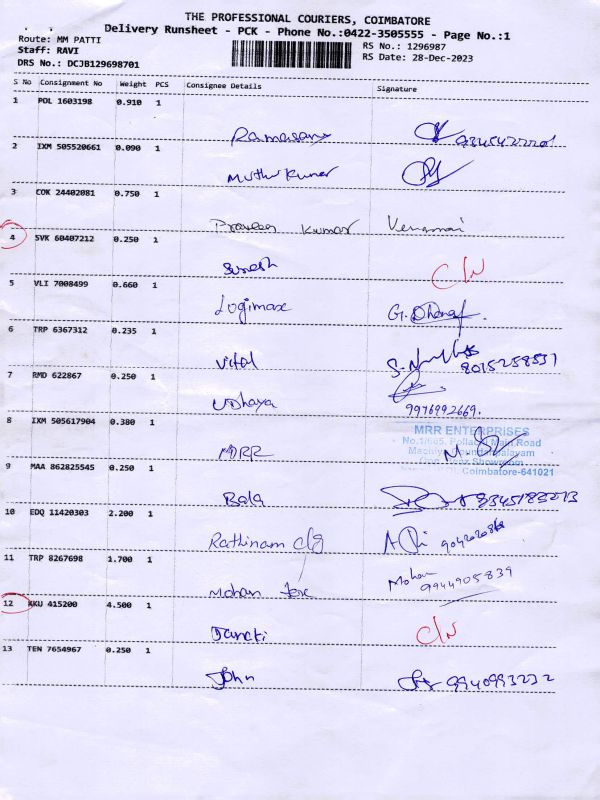 THE PROFESSIONAL COURIERS, COIMBATORE
Delivery Runsheet - PCK - Phone No.:0422-3505555 - Page No.:1
Route: MM PATTI
RS No.: 1296987
Staff: RAVI
RS Date: 28-Dec-2023
DRS No.: DCJB129698701
S No Consignment No Weight PCS Consignee Details Signature
1 POL 1603198 0.910 1
Ramasamy
2 IXM 505520661 0.090 1
Muthu Kumar
3 COK 24402081 0.750 1
Praveen Kumar
4 SVK 60407212 0.250 1
Suresh C/N
5 VLI 7008499 0.660 1
Logimax G.
6 TRP 6367312 0.235 1
Vital S. 8015258557
7 RMD 622867 0.250 1
Udhaya 9976992669.
8 IXM 505617904 0.380 1
MRR ENTERPRISES
MRR
Main Road
Coimbatore-641021
9 MAA 862825545 0.250 1
Bala
10 EDQ 11420303 2.200 1
Rathinam clg
11 TRP 8267698 1.700 1
Mohan tex Mohan 9944905839
12 KKU 415200 4.500 1
C/N
13 TEN 7654967 0.250 1
John 9940993232